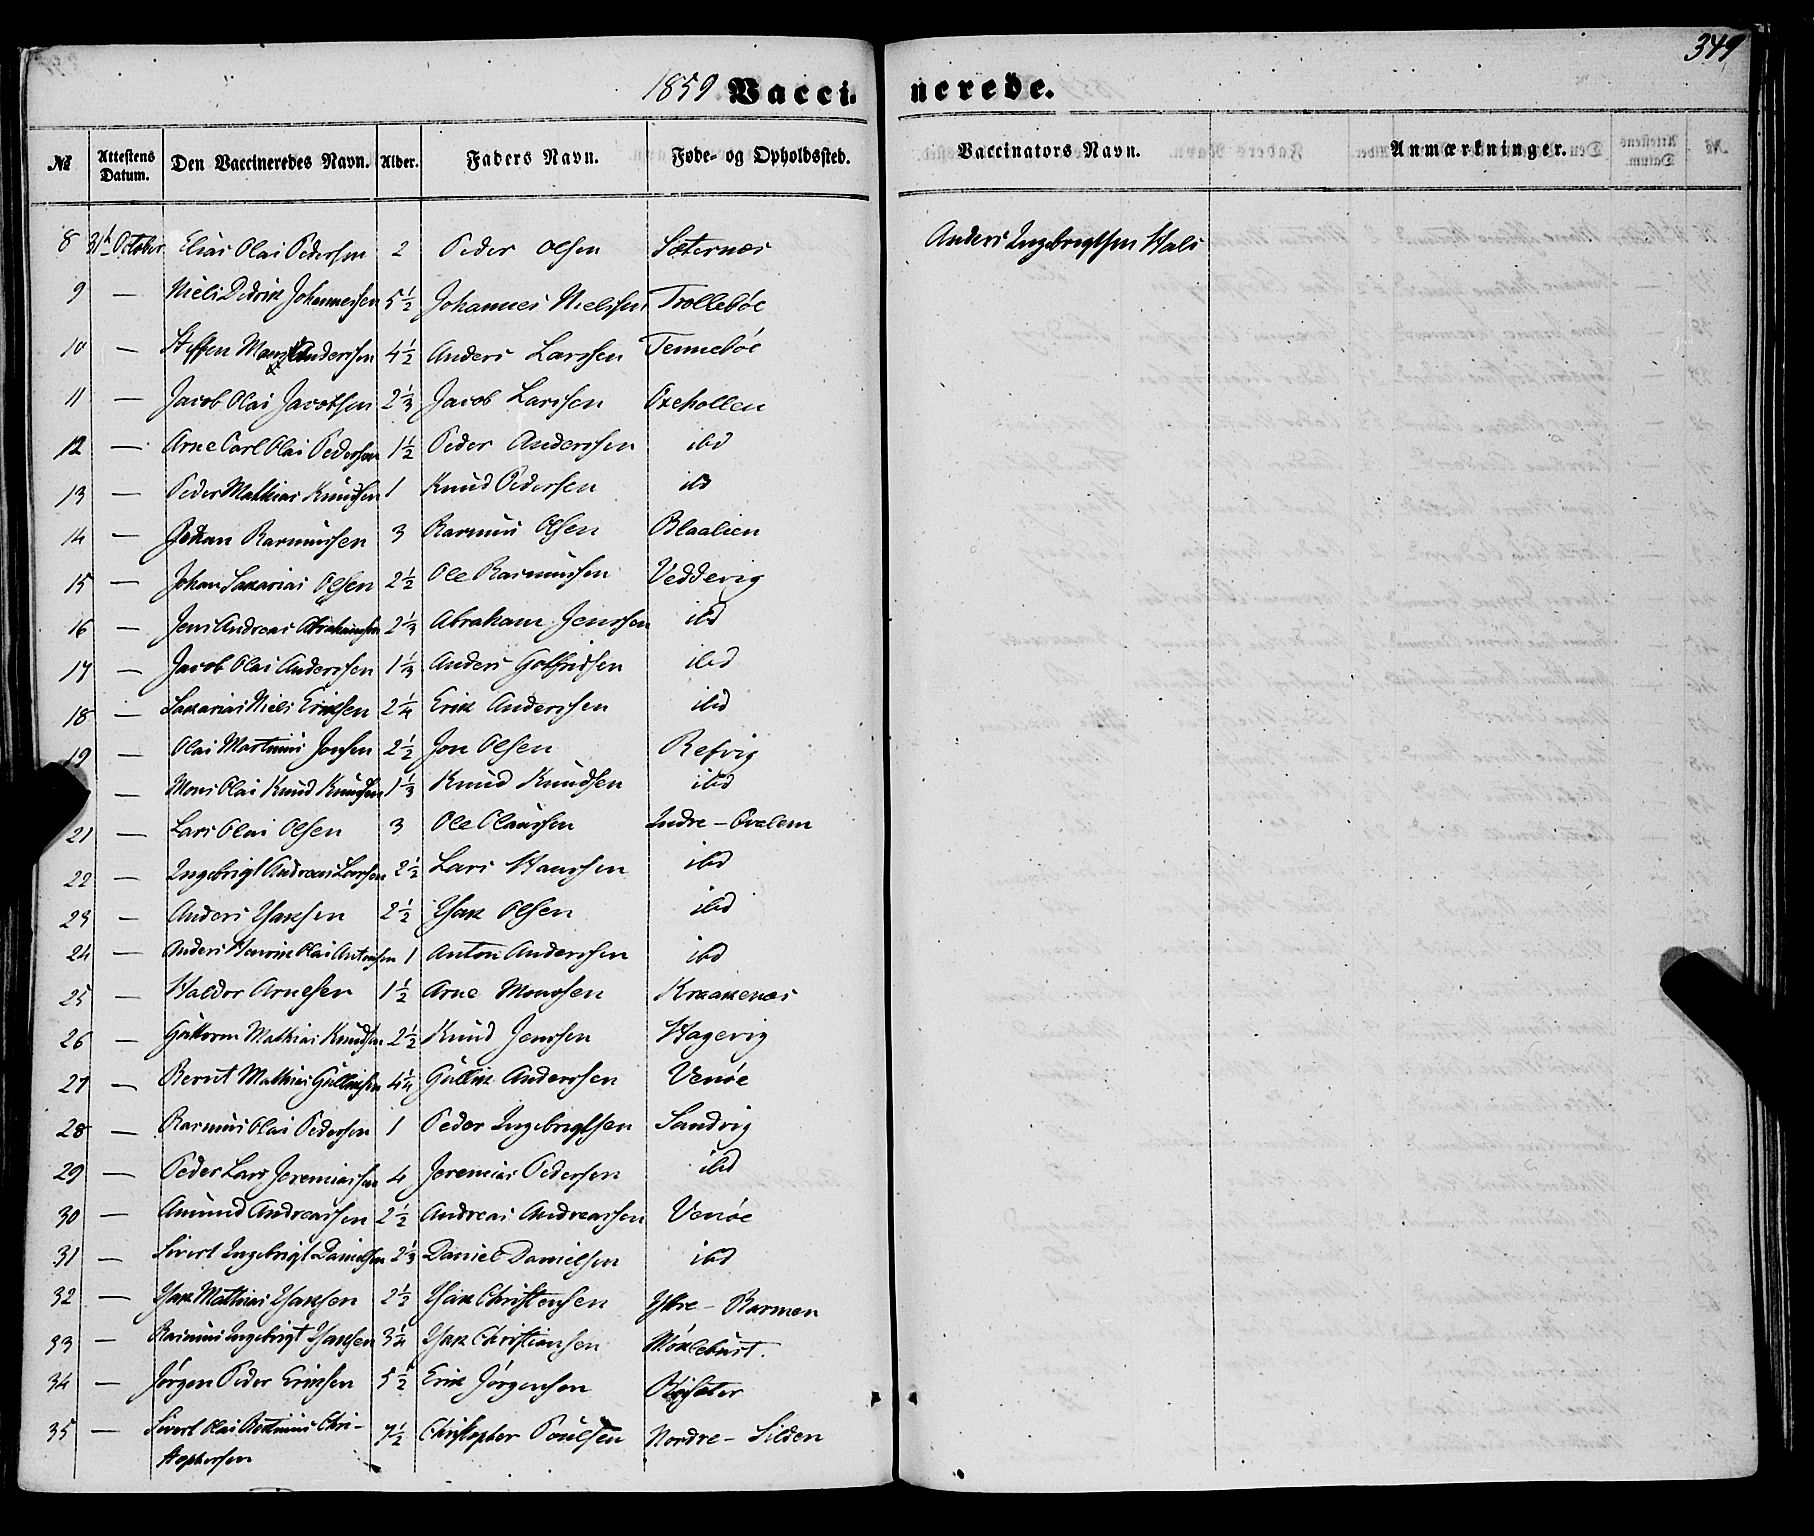 349
1859 Vaccinerede.
№ Attestens Datum. Den Vaccineredes Navn. Alder. Faders Navn. Føde- og Opholdssted. Vaccinators Navn. Anmærkninger.
8 31te October Elias Olai Pedersen 2 Peder Olsen Sæternæs Anders Ingebrigtsen Hals
9 — Niels Didrik Johannessen 5½ Johannes Nielssen Trolleböe
10 — Steffen Mons Anderssen 4½ Anders Larssen Tenneböe
11 — Jacob Olai Jacobsen 2⅓ Jacob Larssen Oxehollen
12 — Arne Carl Olai Pedersen 1½ Peder Anderssen ibd
13 — Peder Mathias Knudsen 1 Knud Pedersen ibd
14 — Johan Rasmussen 3 Rasmus Olsen Blaalien
15 — Johan Sakarias Olsen 2½ Ole Rasmussen Vedvig
16 — Jens Andreas Abrahamsen 2⅓ Abraham Jenssen ibd
17 — Jacob Olai Anderssen 1⅓ Anders Gotfridsen ibd
18 — Sakarias Niels Eriksen 2¼ Erik Anderssen ibd
19 — Olai Martinus Jonsen 2½ Jon Olsen Refvig
— Mons Olai Knud Knudsen 1⅓ Knud Knudsen ibd
21 — Lars Olai Olsen 3 Ole Olaussen Indre-Qvalem
22 — Ingebrigt Andreas Larssen 2½ Lars Hanssen ibd
23 — Anders Isaksen 2½ Isak Olsen ibd
24 — Anders Henrik Olai Antonsen 1 Anton Anderssen ibd
25 — Haldor Arnesen 1½ Arne Monssen Kraakenæs
26 — Guttorm Mathias Knudsen 2½ Knud Jenssen Hagevig
27 — Bernt Mathias Gulliksen 4¼ Gullik Anderssen Venöe
28 — Rasmus Olai Pedersen 1 Peder Ingebrigtsen Sandvig
29 — Peder Lars Jeremiassen 4 Jeremias Pedersen ibd
30 — Amund Andreassen 2½ Andreas Andreassen Venöe
31 — Sivert Ingebrigt Danielsen 2⅓ Daniel Danielsen ibd
32 — Isak Mathias Isaksen 2½ Isak Christensen Ytre-Barmen
33 — Rasmus Ingebrigt Isaksen 3¼ Isak Christiansen Möklebust.
34 — Jörgen Peder Eriksen 5½ Erik Jörgensen
35 — Sivert Olai Chri-
stophersen 7½ Christopher Poulsen Nordre-Silden